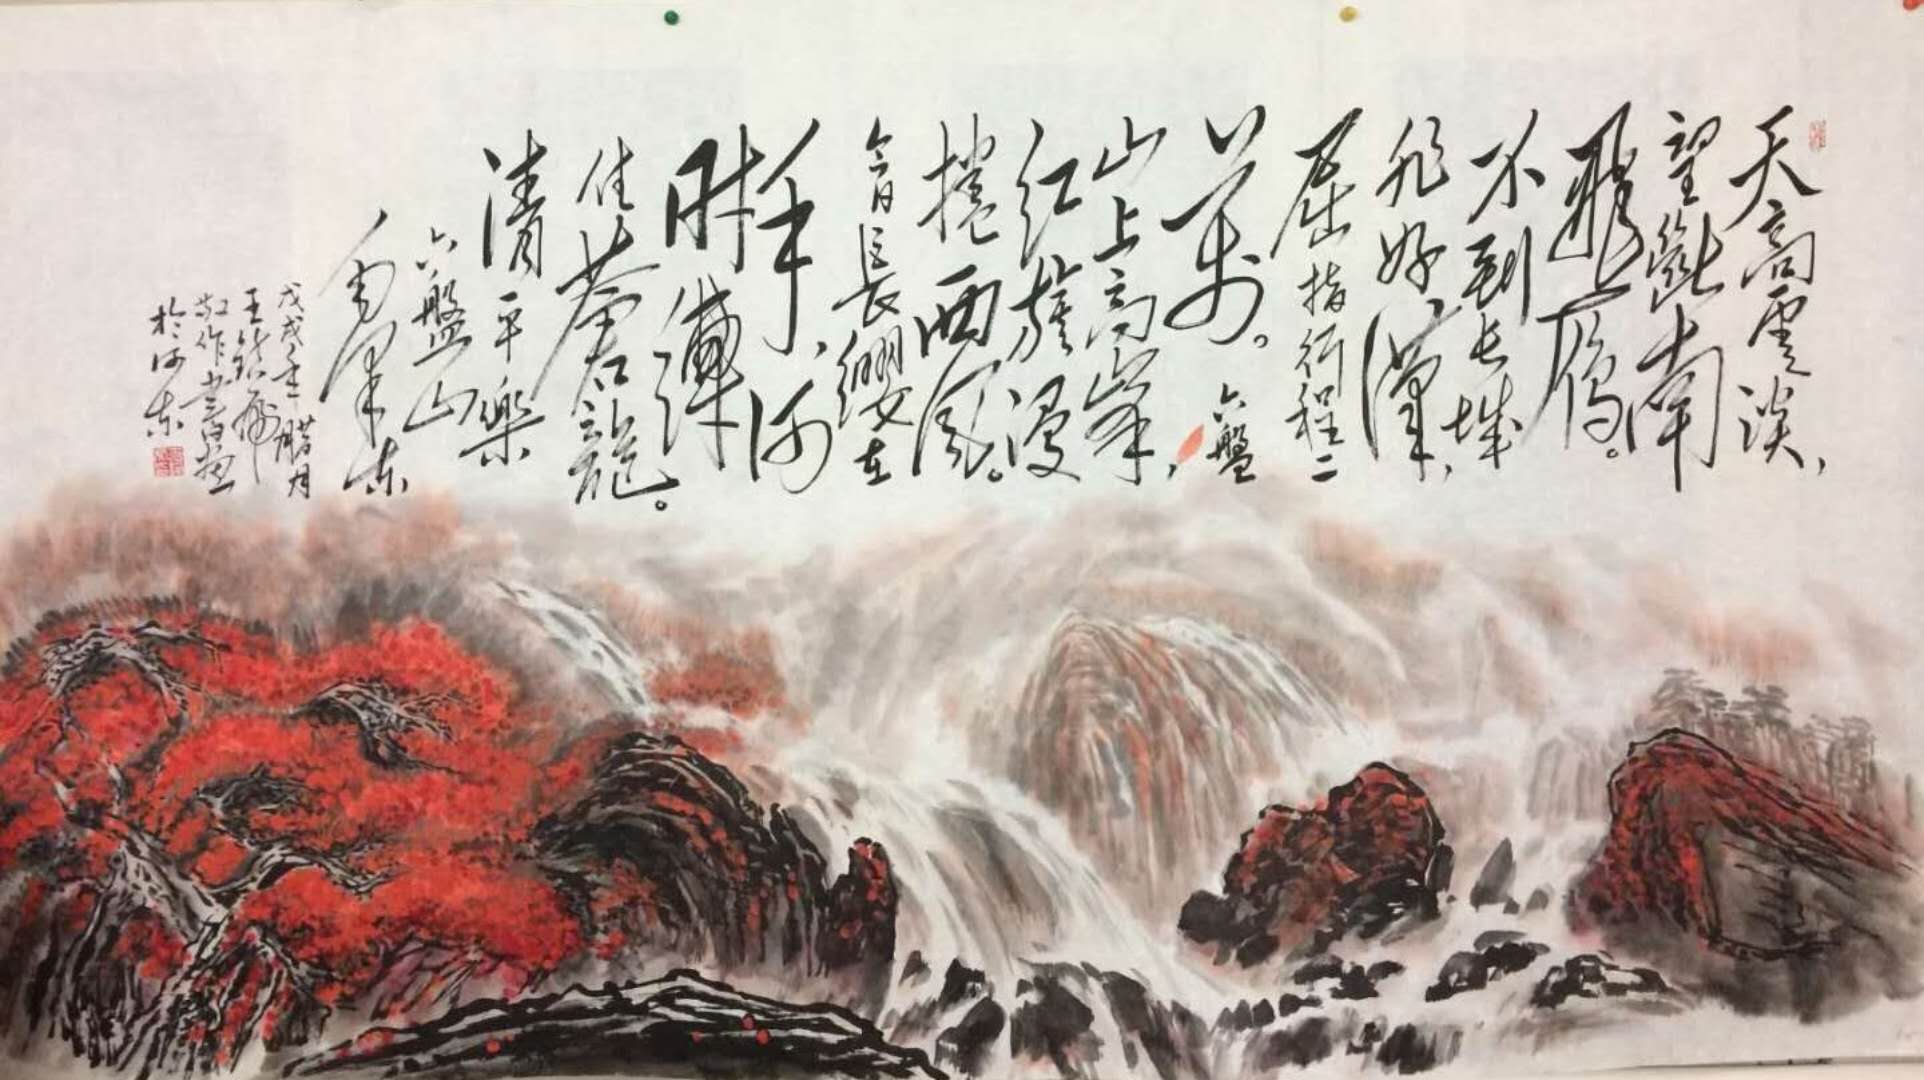 天高雲淡，
望斷南
飛雁。
不到长城
非好漢，
屈指行程二
萬。六盤
山上高峯，
紅旗漫
捲西風。
今日長纓在
手，何
時縛
住蒼龍。
清平樂
六盤山
毛澤東
戊戌年腊月
王
敬作書畫
於河東